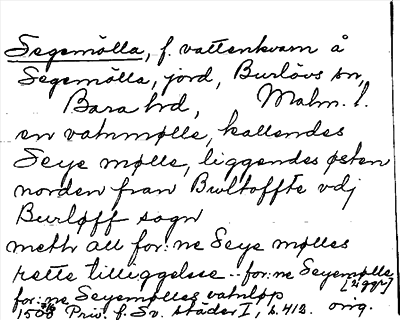 Segemölla, f. vattenkvarn å
Segemölla, jord, Burlövs sn,
Bara hd, Malm. l.
en vatnmølle, kallendes
Seye mølle, liggendes østen
norden fran Bwltoffte vdj
Burløff sogn
meth all for:ne Seye mølles
rette tilliggelse .. for:ne Seyemølle
[ligger]
for:ne Seyemølles vatnløp
1508 Priv. f. Sv. städer I, s. 412. orig.